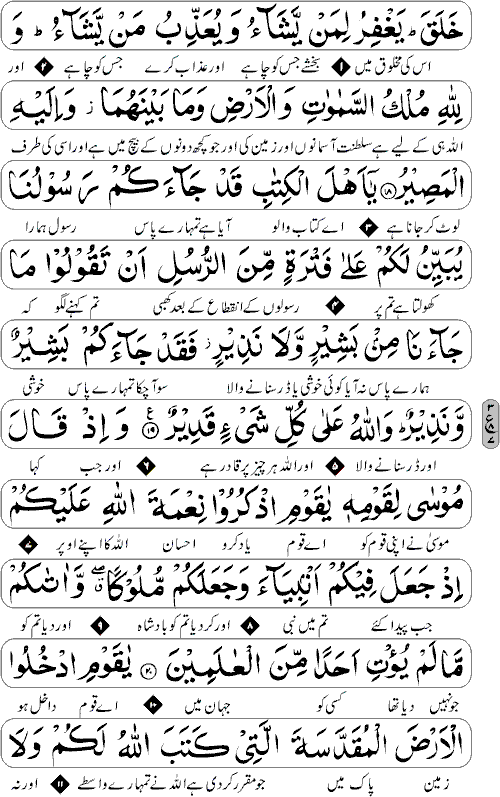 خَلَقَ ؕ یَغْفِرُ لِمَنْ یَّشَآءُ وَ یُعَذِّبُ مَنْ یَّشَآءُ ؕ وَ
اس کی مخلوق میں ۱ بخشے جس کو چاہے اور عذاب کرے جس کو چاہے ۲ اور
لِلّٰهِ مُلْكُ السَّمٰوٰتِ وَ الْاَرْضِ وَمَا بَیْنَهُمَا ز وَ اِلَیْهِ
اللہ ہی کے لیے ہے سلطنت آسمانوں اور زمین کی اور جو کچھ دونوں کے بیچ میں ہے اور اسی کی طرف
الْمَصِیْرُ ۱۸ یٰۤاَهْلَ الْكِتٰبِ قَدْ جَآءَكُمْ رَسُوْلُنَا
لوٹ کر جانا ہے ۳ اے کتاب والو آیا ہے تمہارے پاس رسول ہمارا
یُبَیِّنُ لَكُمْ عَلٰی فَتْرَةٍ مِّنَ الرُّسُلِ اَنْ تَقُوْلُوْا مَا
کھولتا ہے تم پر ۴ رسولوں کے انقطاع کے بعد کبھی تم کہنے لگو کہ
جَآءَنَا مِنْۢ بَشِیْرٍ وَّلَا نَذِیْرٍ ز فَقَدْ جَآءَكُمْ بَشِیْرٌ
ہمارے پاس نہ آیا کوئی خوشی یا ڈر سنانے والا سو آچکا تمہارے پاس خوشی
وَّ نَذِیْرٌ ؕ وَاللّٰهُ عَلٰی كُلِّ شَیْءٍ قَدِیْرٌ ۱۹ ع وَ اِذْ قَالَ
اور ڈر سنانے والا ۵ اور اللہ ہر چیز پر قادر ہے ۶ اور جب کہا
۳ ع ۷
مُوْسٰی لِقَوْمِهٖ یٰقَوْمِ اذْكُرُوْا نِعْمَةَ اللّٰهِ عَلَیْكُمْ
موسٰی نے اپنی قوم کو اے قوم یاد کرو احسان اللہ کا اپنے اوپر ۷
اِذْ جَعَلَ فِیْكُمْ اَنْۢبِیَآءَ وَجَعَلَكُمْ مُّلُوْكًا ق وَّاٰتٰىكُمْ
جب پیدا کئے تم میں نبی ۸ اور کر دیا تم کو بادشاہ ۹ اور دیا تم کو
مَّا لَمْ یُؤْتِ اَحَدًا مِّنَ الْعٰلَمِیْنَ ۲۰ یٰقَوْمِ ادْخُلُوا
جو نہیں دیا تھا کسی کو جہان میں ۱۰ اے قوم داخل ہو
الْاَرْضَ الْمُقَدَّسَةَ الَّتِیْ كَتَبَ اللّٰهُ لَكُمْ وَلَا
زمین پاک میں جو مقرر کر دی ہے اللہ نے تمہارے واسطے ۱۱ اور نہ